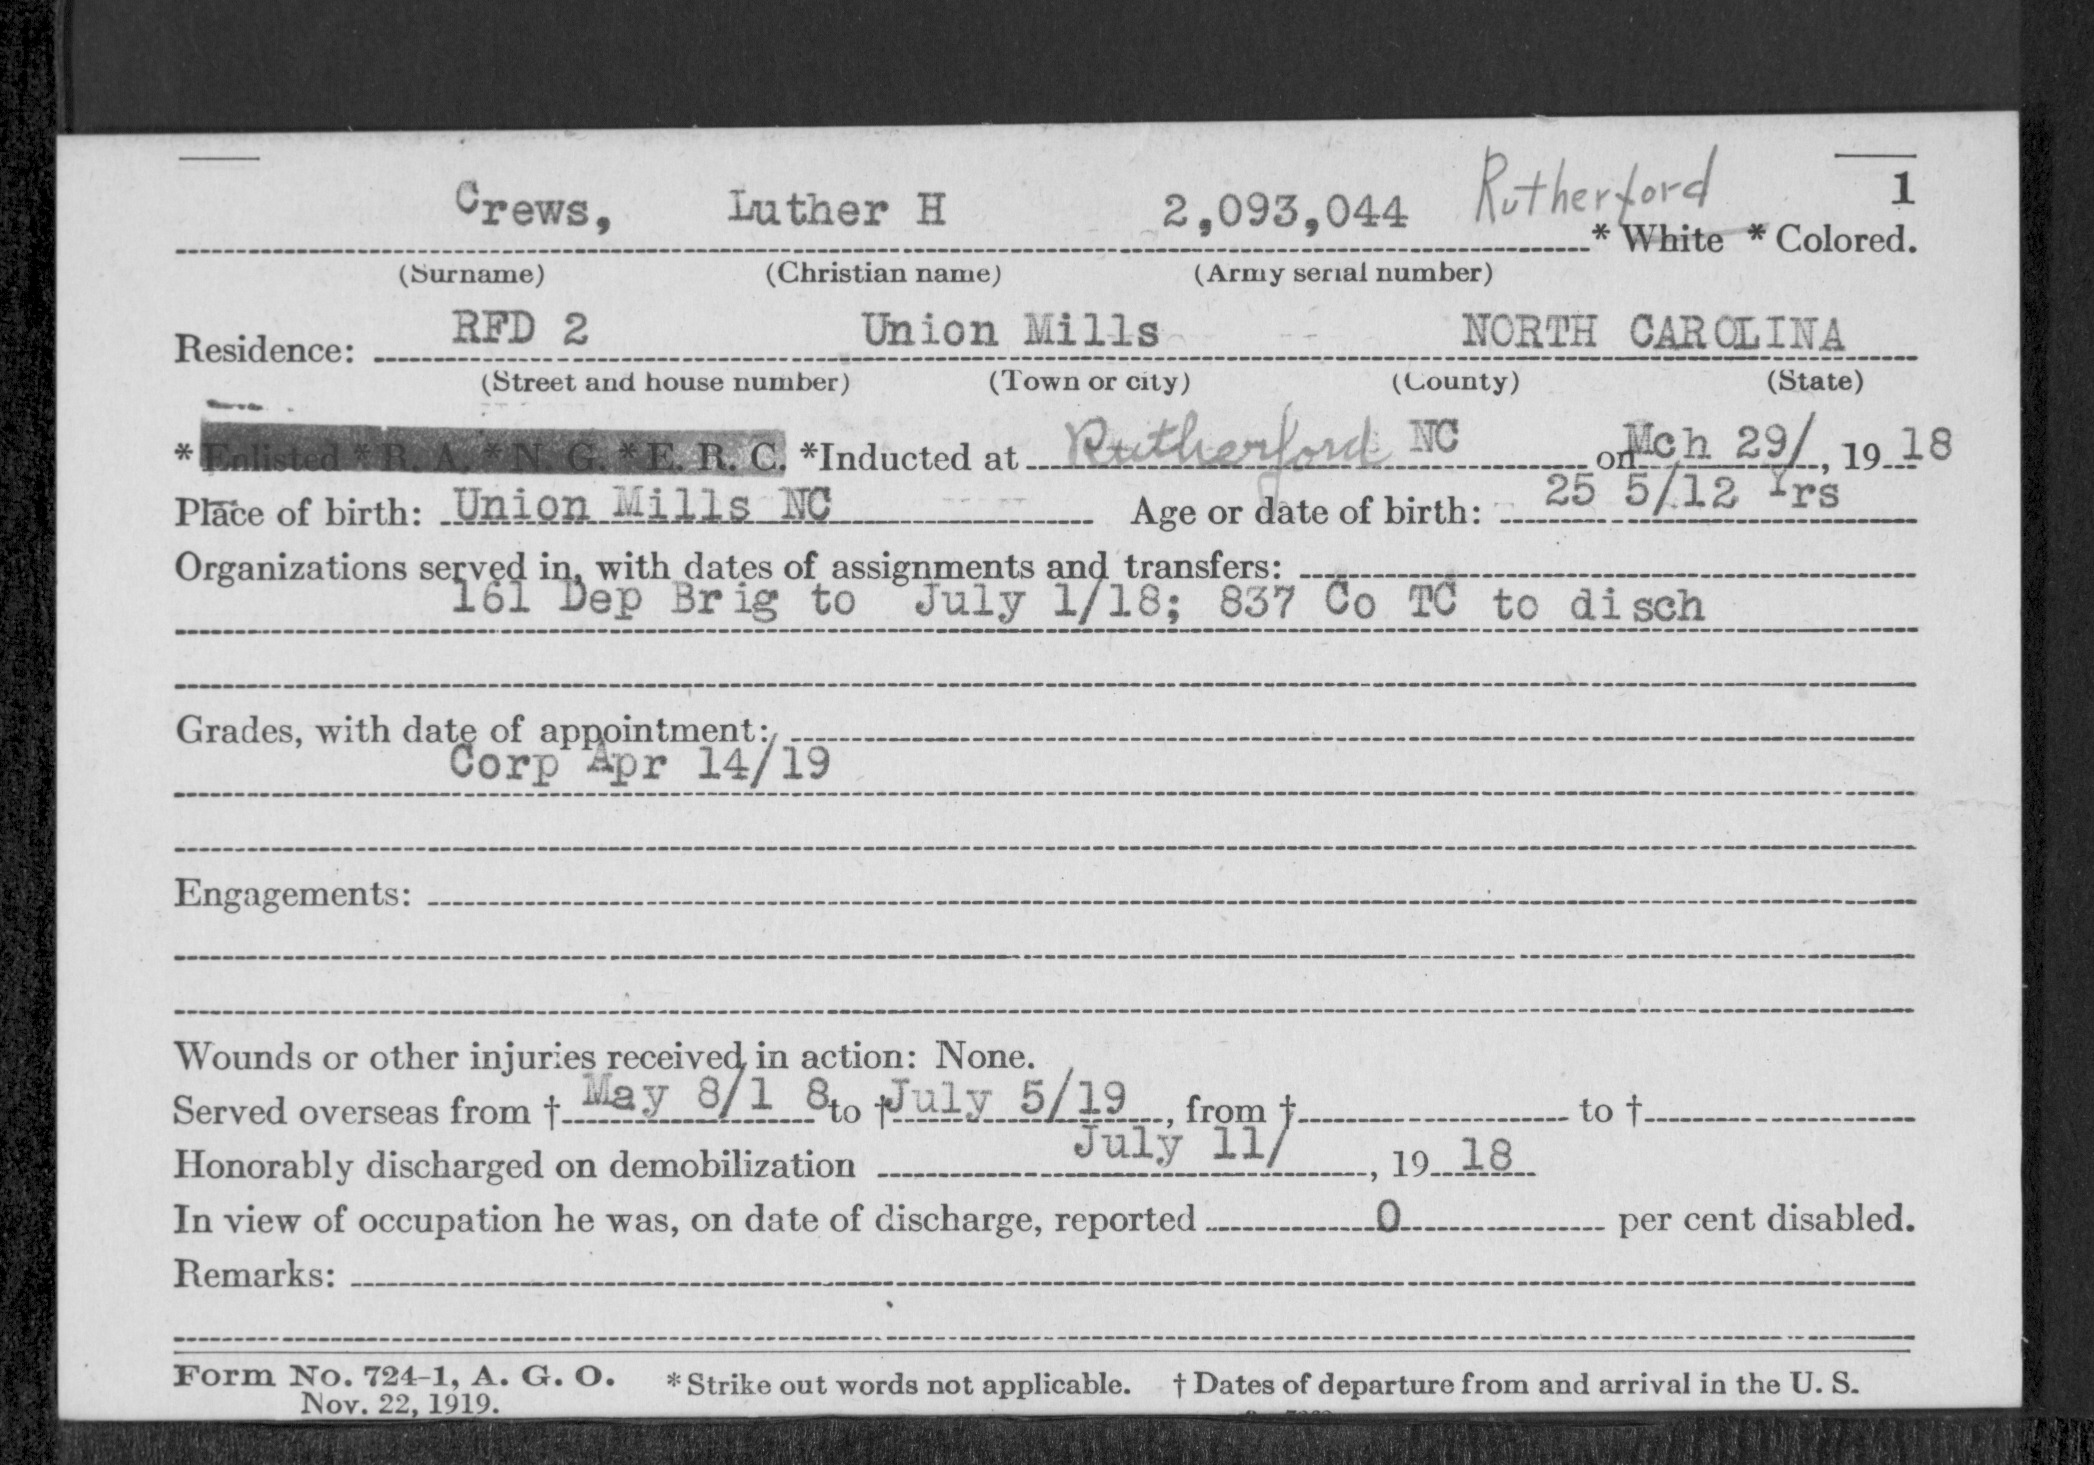 Rutherford 1
Crews, Luther H 2,093,044 * White * Colored.
(Surname) (Christian name) (Army serial number)
Residence: RFD 2 Union Mills NORTH CAROLINA
(Street and house number) (Town or city) (County) (State)
*Enlisted *R. A. *N. G. *E. R. C. *Inducted at Rutherford NC on Mch 29/, 19 18
Place of birth: Union Mills NC Age or date of birth: 25 5/12 Yrs
Organizations served in, with dates of assignments and transfers:
161 Dep Brig to July 1/18; 837 Co TC to disch
Grades, with date of appointment:
Corp Apr 14/19
Engagements:
Wounds or other injuries received in action: None.
Served overseas from † May 8/1 8 to † July 5/19, from † to †
Honorably discharged on demobilization July 11/, 19 18
In view of occupation he was, on date of discharge, reported 0 per cent disabled.
Remarks:
Form No. 724-1, A. G. O. *Strike out words not applicable. † Dates of departure from and arrival in the U. S.
Nov. 22, 1919.